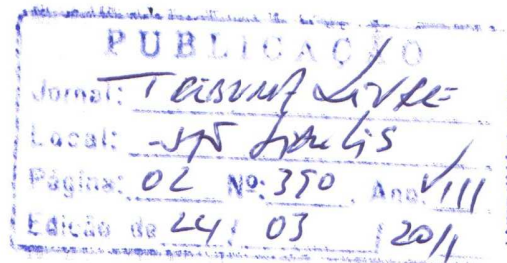 PUBLICAÇÃO
Jornal: TRIBUNA LIVRE
Local: São Fidelis
Página: 02 Nº: 390 Ano: VIII
Edição de 24 / 03 / 2011